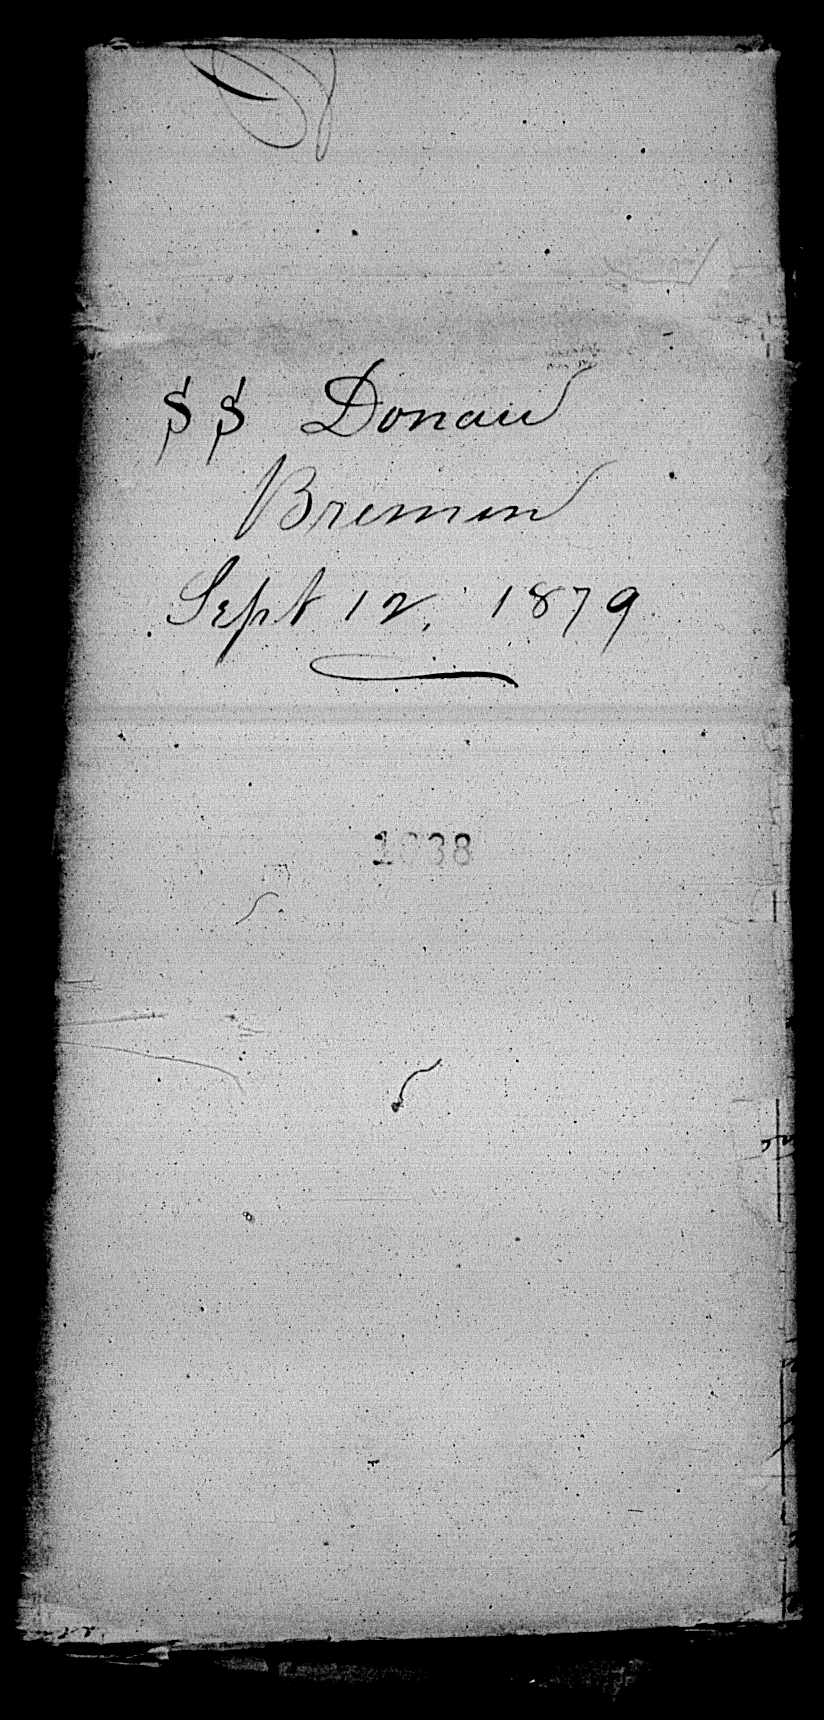 SS Donau
Bremen
Sept 12, 1879
1038